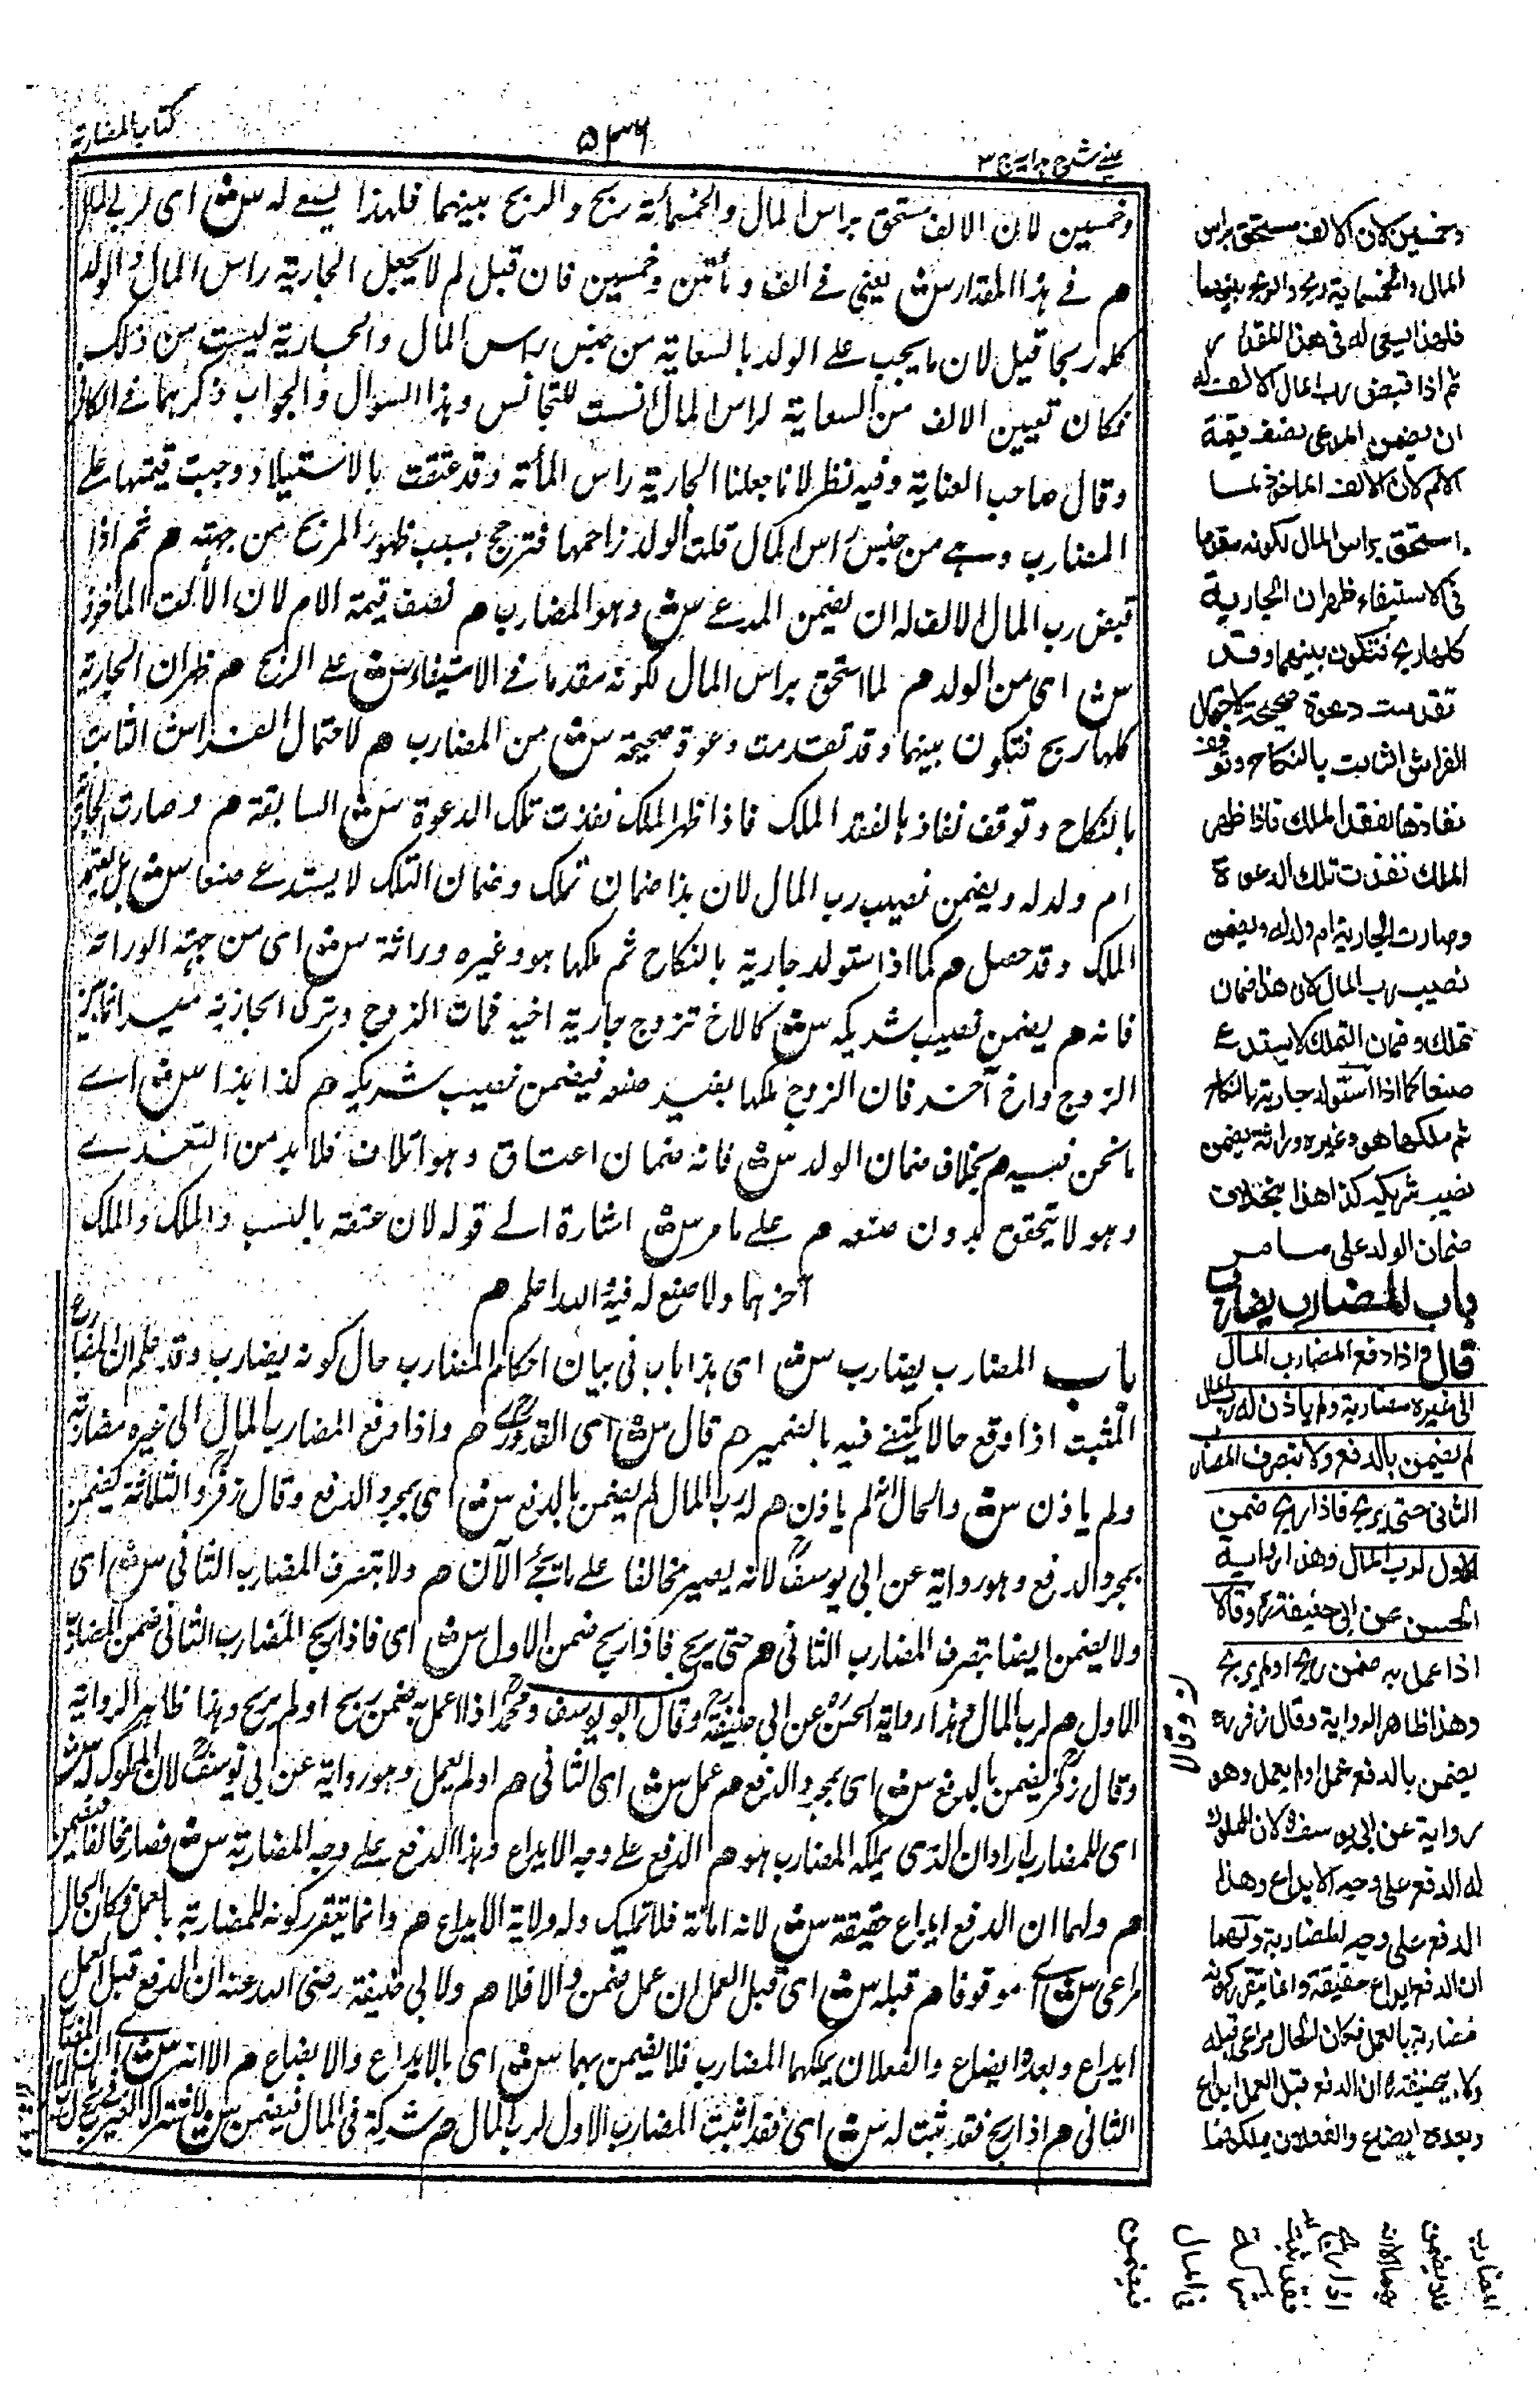 كتاب المضاربة
٥٣٦
عينى شرح هدايه ج ٣
وخمسين لان الالف مستحق براس المال والخمسمائة ربح والربح بينهما فلهذا يسعے له سش اى لرب المال
هم فے هذا المقدار سش يعنى فے الف ومأتين وخمسين فان قيل لم لا يجعل الجارية راس المال والولد
كله ربحا قيل لان ما يجب علے الولد بالسعاية من جنس راس المال والجارية ليست من ذلك
فكان تعيين الالف من السعاية لراس المال انسب للتجانس وهذا السوال والجواب ذكرهما فے الكافى
وقال صاحب العناية وفيه نظر لانا جعلنا الجارية راس المأته وقد عتقت بالاستيلاد ووجبت قيمتها علے
المضارب وهے من جنس راس المال قلت الولد زاحمها فترجح بسبب ظهور الربح من جهته هم ثم اذا
قبض رب المال الالف له ان يضمن المدعے سش وهو المضارب هم نصف قيمة الام لان الالف الماخوذ
سش اى من الولد هم لما استحق براس المال لكونه مقدما فے الاستيفاء سش علے الربح هم ظهر ان الجارية
كلها ربح فتكون بينهما وقد تقدمت دعوة صحيحة سش من المضارب هم لاحتمال الفراش الثابت
بالنكاح وتوقف نفاذها لفقد الملك فاذا ظهر الملك نفذت تلك الدعوة سش السابقة هم وصارت الجارية
ام ولد له ويضمن نصيب رب المال لان هذا ضمان تملك وضمان التملك لا يستدعے صنعا سش بل يعتمد
الملك وقد حصل هم كما اذا استولد جارية بالنكاح ثم ملكها هو وغيره وراثة سش اى من جهة الوراثة
فانه هم يضمن نصيب شريكه سش كالاخ تزوج جارية اخيه فمات الزوج وترك الجارية ميراثا بين
الزوج واخ آخر فان الزوج ملكها بغير صنعه فيضمن نصيب شريكه هم كذا هذا سش اے
ما نحن فيه هم بخلاف ضمان الولد سش فانه ضمان اعتاق وهو اتلاف فلا بد من التعدے
وهو لا يتحقق بدون صنعه هم علے ما مر سش اشارة الے قوله لان عتقه بالنسب والملك والملك
آخرهما ولا صنع له فيه الله اعلم هم
باب المضارب يضارب سش اى هذا باب فى بيان احكام المضارب حال كونه يضارب وقد علم ان المضارع
المثبت اذا وقع حالا يكتفے فيه بالضمير هم قال سش اى القدورى هم واذا دفع المضارب المال الى غيره مضاربة
ولم ياذن سش والحال انه لم ياذن هم له رب المال لم يضمن بالدفع سش اى بمجرد الدفع وقال زفر والثلاثة يضمن
بمجرد الدفع وهو رواية عن ابى يوسف لانه يصير مخالفا علے ما يجئ الآن هم ولا بتصرف المضارب الثانى سش اى
ولا يضمن ايضا بتصرف المضارب الثانى هم حتى يربح فاذا ربح ضمن الاول سش اى فاذا ربح المضارب الثانى ضمن المضارب
الاول هم لرب المال وهذا رواية الحسن عن ابى حنيفة وقال ابو يوسف ومحمد اذا عمل به ضمن ربح او لم يربح وهذا ظاهر الرواية
وقال زفر يضمن بالدفع سش اى بمجرد الدفع هم عمل سش اى الثانى هم او لم يعمل وهو رواية عن ابى يوسف لان المملوك له سش
اى للمضارب اراد ان الذى يملكه المضارب هو هم الدفع علے وجه الايداع وهذا الدفع علے وجه المضاربة سش فصار مخالفا فيضمن
هم ولهما ان الدفع ايداع حقيقة سش لانه امانة فلا تمليك وله ولاية الايداع هم وانما يتقرر كونه للمضاربة بالعمل فكان الحال
مراعى سش اے موقوفا هم قبله سش اى قبل العمل ان عمل ضمن والا فلا هم ولابى حنيفة رضى الله عنه ان الدفع قبل العمل
ايداع وبعده ايضاع والفعلان يملكهما المضارب فلا يضمن بهما سش اى بالايداع والابضاع هم الا انه سش اى ان المضارب
الثانى هم اذا ربح فقد ثبت له سش اى فقد اثبت المضارب الاول لرب المال هم شركة فى المال فيضمن سش لاشتراك الغير فے ربح
وخمسين لان الالف مستحق براس
المال والخمسماية ربح والربح بينهما
فلهذا يسعى له فى هذا المقدار
ثم اذا قبض رب المال الالف له
ان يضمن المدعى نصف قيمة
الام لان الالف الماخوذ لما
استحق براس المال لكونه مقدما
فى الاستيفاء ظهر ان الجارية
كلها ربح فتكون بينهما وقد
تقدمت دعوة صحيحة لاحتمال
الفراش الثابت بالنكاح وتوقف
نفاذها لفقد الملك فاذا ظهر
الملك نفذت تلك الدعوة
وصارت الجارية ام ولد له ويضمن
نصيب رب المال لان هذا ضمان
تملك وضمان التملك لا يستدعى
صنعا كما اذا استولد جارية بالنكاح
ثم ملكها هو وغيره وراثة يضمن
نصيب شريكه كذا هذا بخلاف
ضمان الولد على ما مر
باب المضارب يضارب
قال واذا دفع المضارب المال
الى غيره مضاربة ولم ياذن له رب المال
لم يضمن بالدفع ولا بتصرف المضارب
الثانى حتى يربح فاذا ربح ضمن
الاول لرب المال وهذا رواية
الحسن عن ابى حنيفة وقالا
اذا عمل به ضمن ربح او لم يربح
وهذا ظاهر الرواية وقال زفر
يضمن بالدفع عمل او لم يعمل وهو
رواية عن ابى يوسف لان المملوك
له الدفع على وجه الايداع وهذا
الدفع على وجه المضاربة ولهما
ان الدفع ايداع حقيقة وانما يتقرر كونه
مضاربة بالعمل فكان الحال مراعى قبله
ولابى حنيفة ان الدفع قبل العمل ايداع
وبعده ابضاع والفعلان يملكهما
ن وقالا
المضارب
فلا يضمن
بهما الا انه
اذا ربح
فقد اثبت له
شركة
فى المال
فيضمن